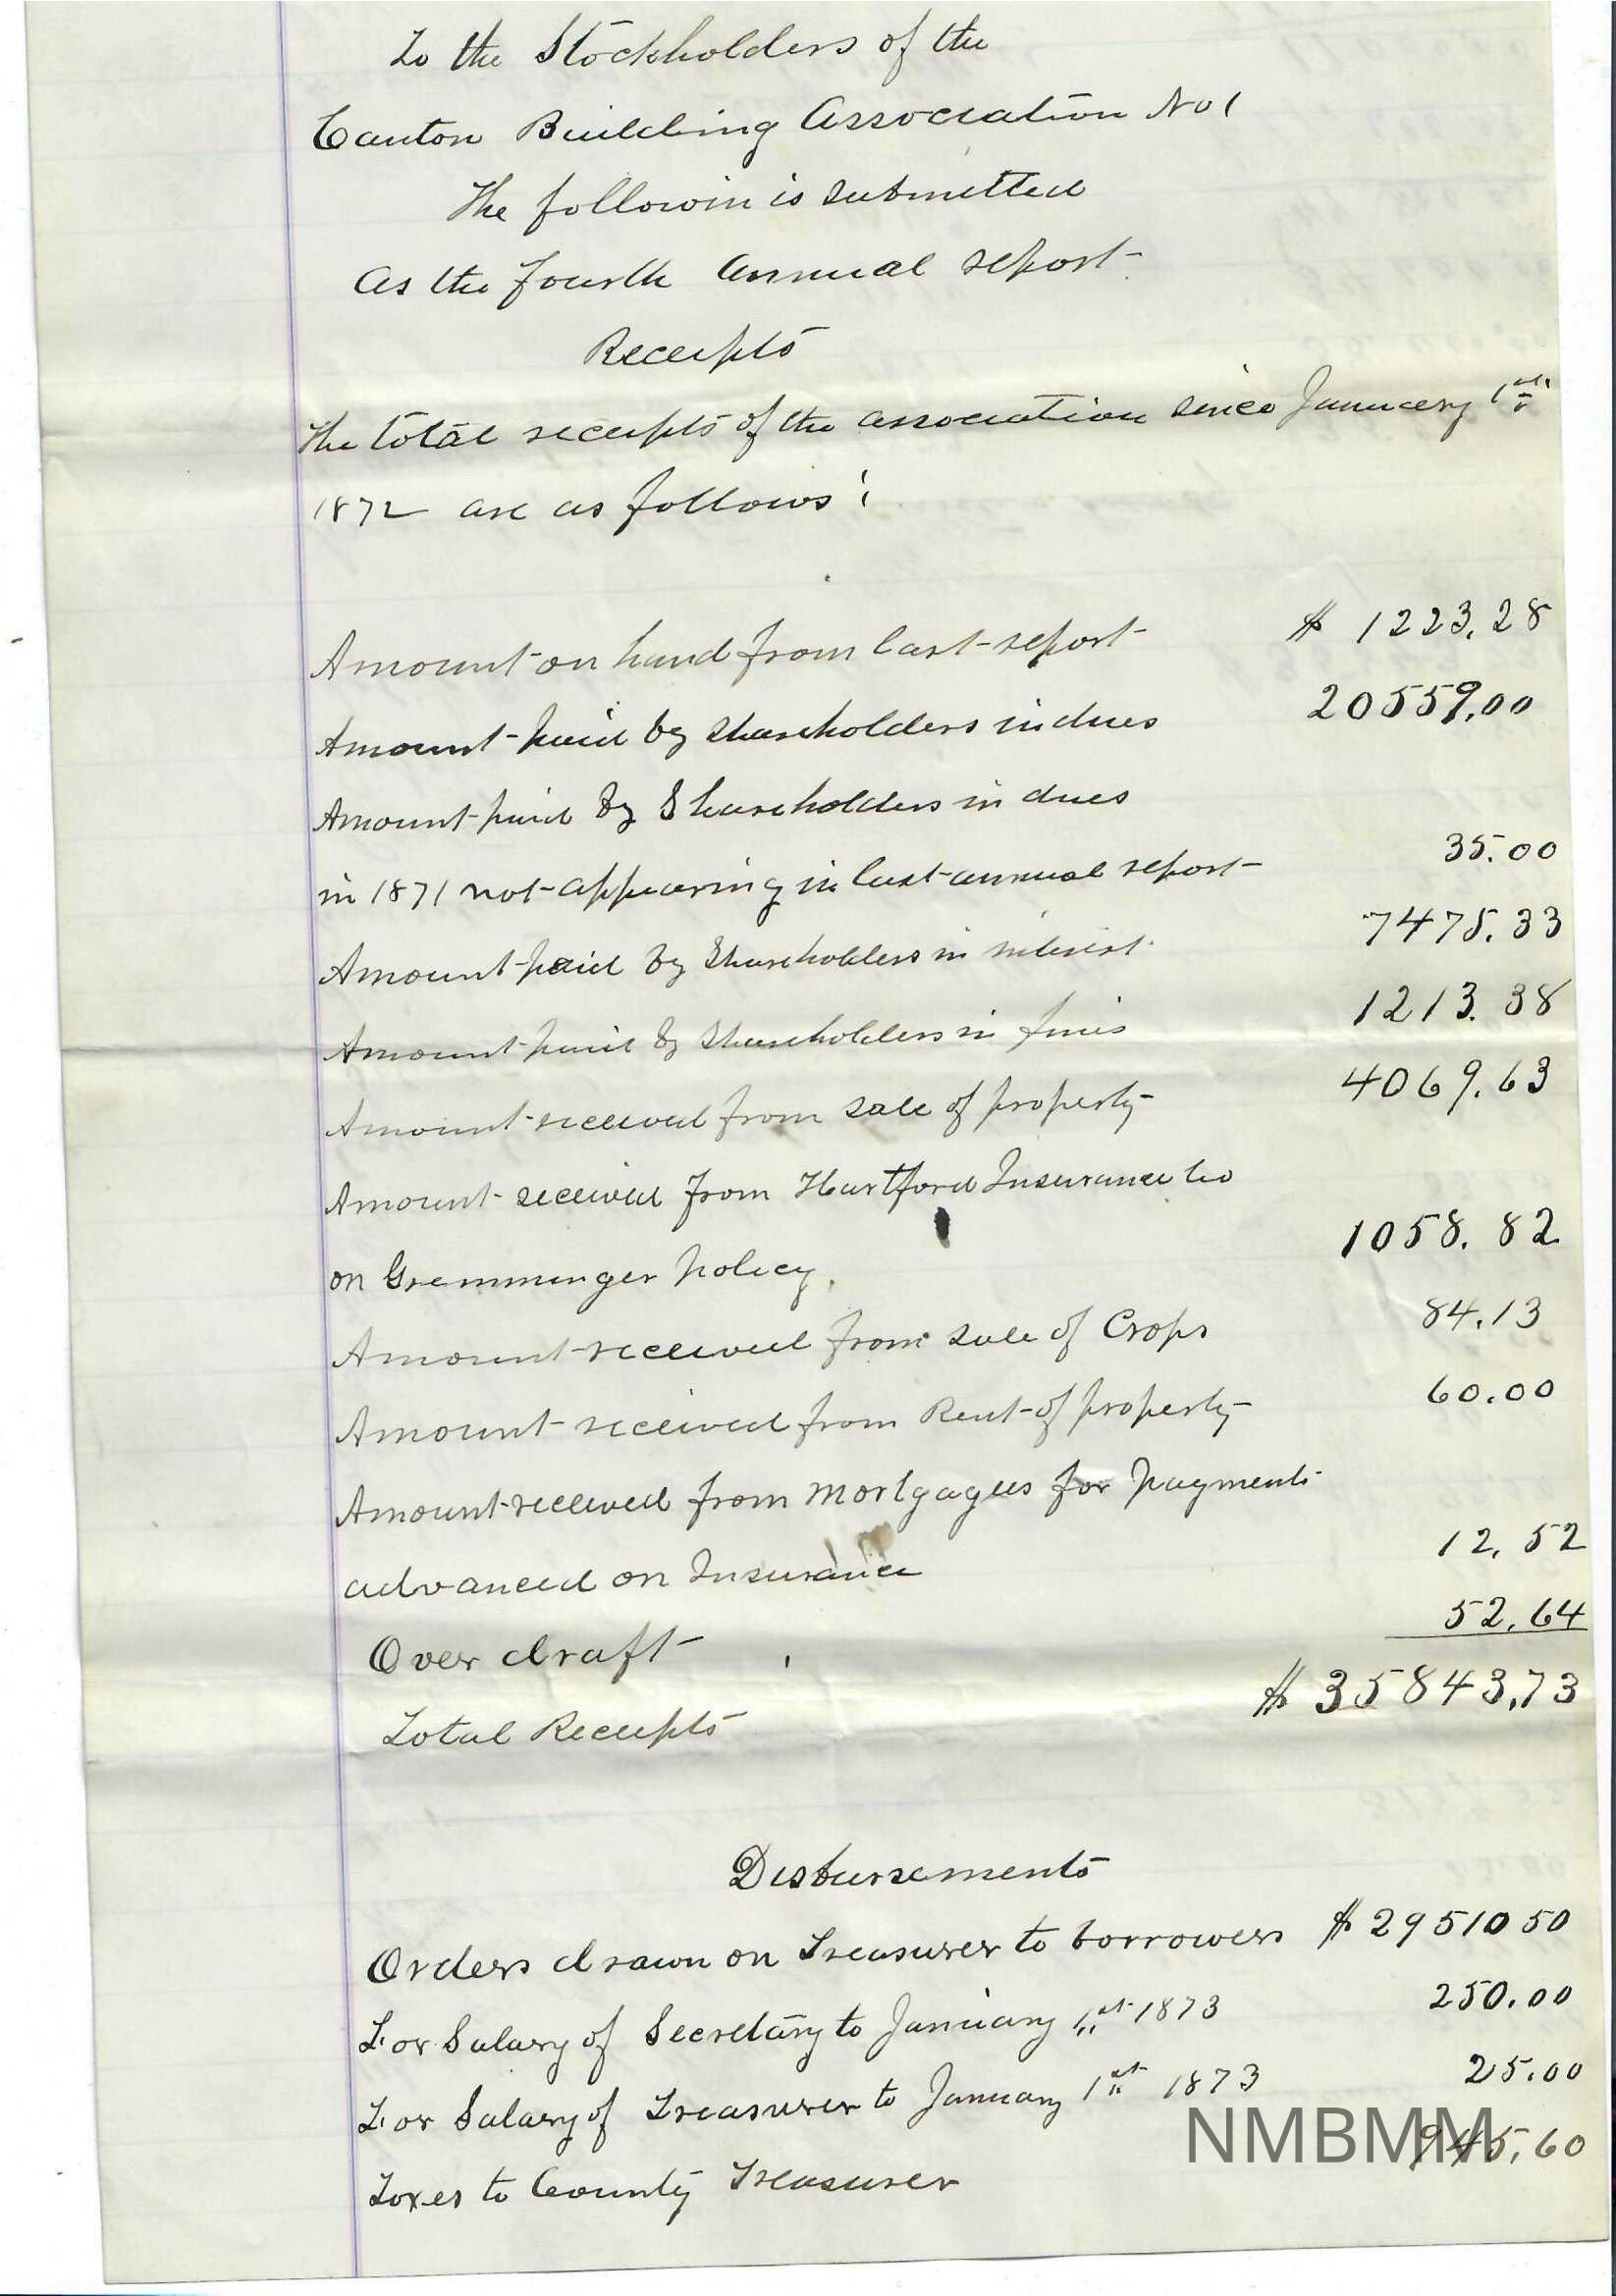 To the Stockholders of the
Canton Building Association No 1
The followin is submitted
As the fourth Annual report
Receipts
The total receipts of the association since January 1st
1872 are as follows:
Amount on hand from last report $ 1223.28
Amount paid by shareholders in dues 20559.00
Amount paid by Shareholders in dues
in 1871 not appearing in last annual report 35.00
Amount paid by Shareholders in interest 7475.33
Amount paid by Shareholders in fines 1213.38
Amount received from sale of property 4069.63
Amount received from Hartford Insurance Co
on Gremminger policy. 1058.82
Amount received from sale of Crops 84.13
Amount received from Rent of property 60.00
Amount received from Mortgagees for payments
advanced on Insurance 12.52
Over draft 52.64
Total Receipts $ 35843.73
Disbursements
Orders drawn on Treasurer to borrowers $ 29510 50
For Salary of Secretary to January 1st 1873 250.00
For Salary of Treasurer to January 1st 1873 25.00
Taxes to County Treasurer 945.60
NMBMM